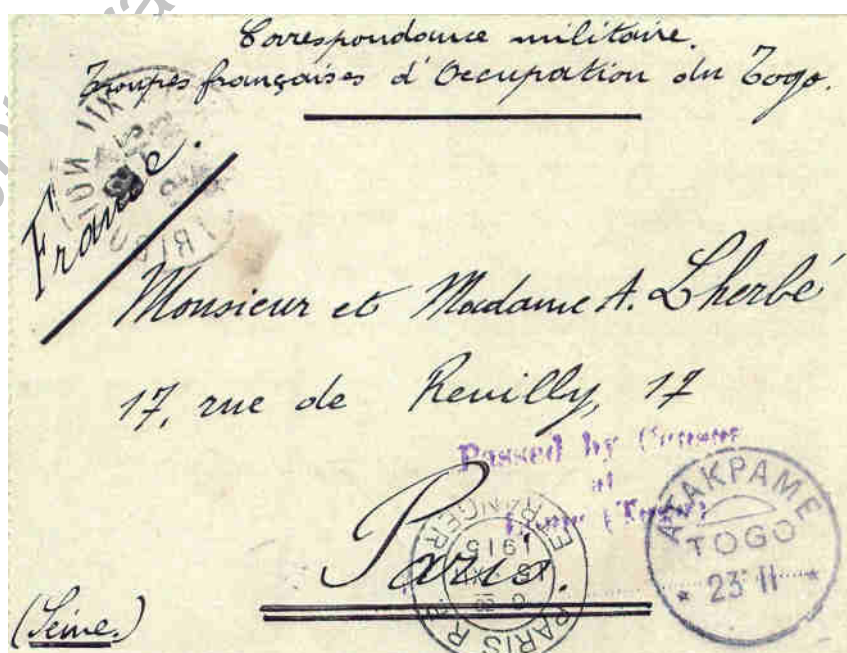 Correspondance militaire.
Troupes françaises d'Occupation du Togo.
France.
Monsieur et Madame A. Lherbé
17, rue de Reuilly, 17
Passed by Censor
at
(Togo)
Paris.
(Seine.)
ATAKPAME
TOGO
* 23 11 *
PARIS R.P.
ETRANGER
1915